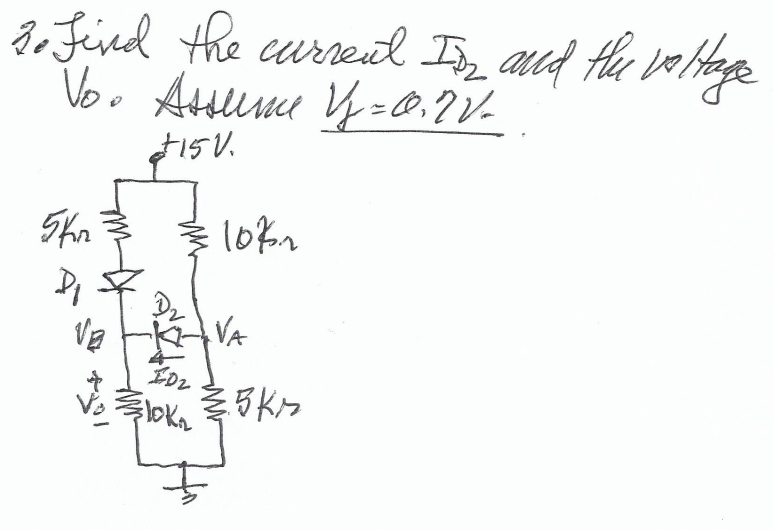 3. Find the current I_D2 and the voltage
Vo. Assume Vγ=0.7V.
+15V.
5KΩ
10KΩ
D1
D2
VB
VA
ID2
+
Vo
-
10KΩ
5KΩ